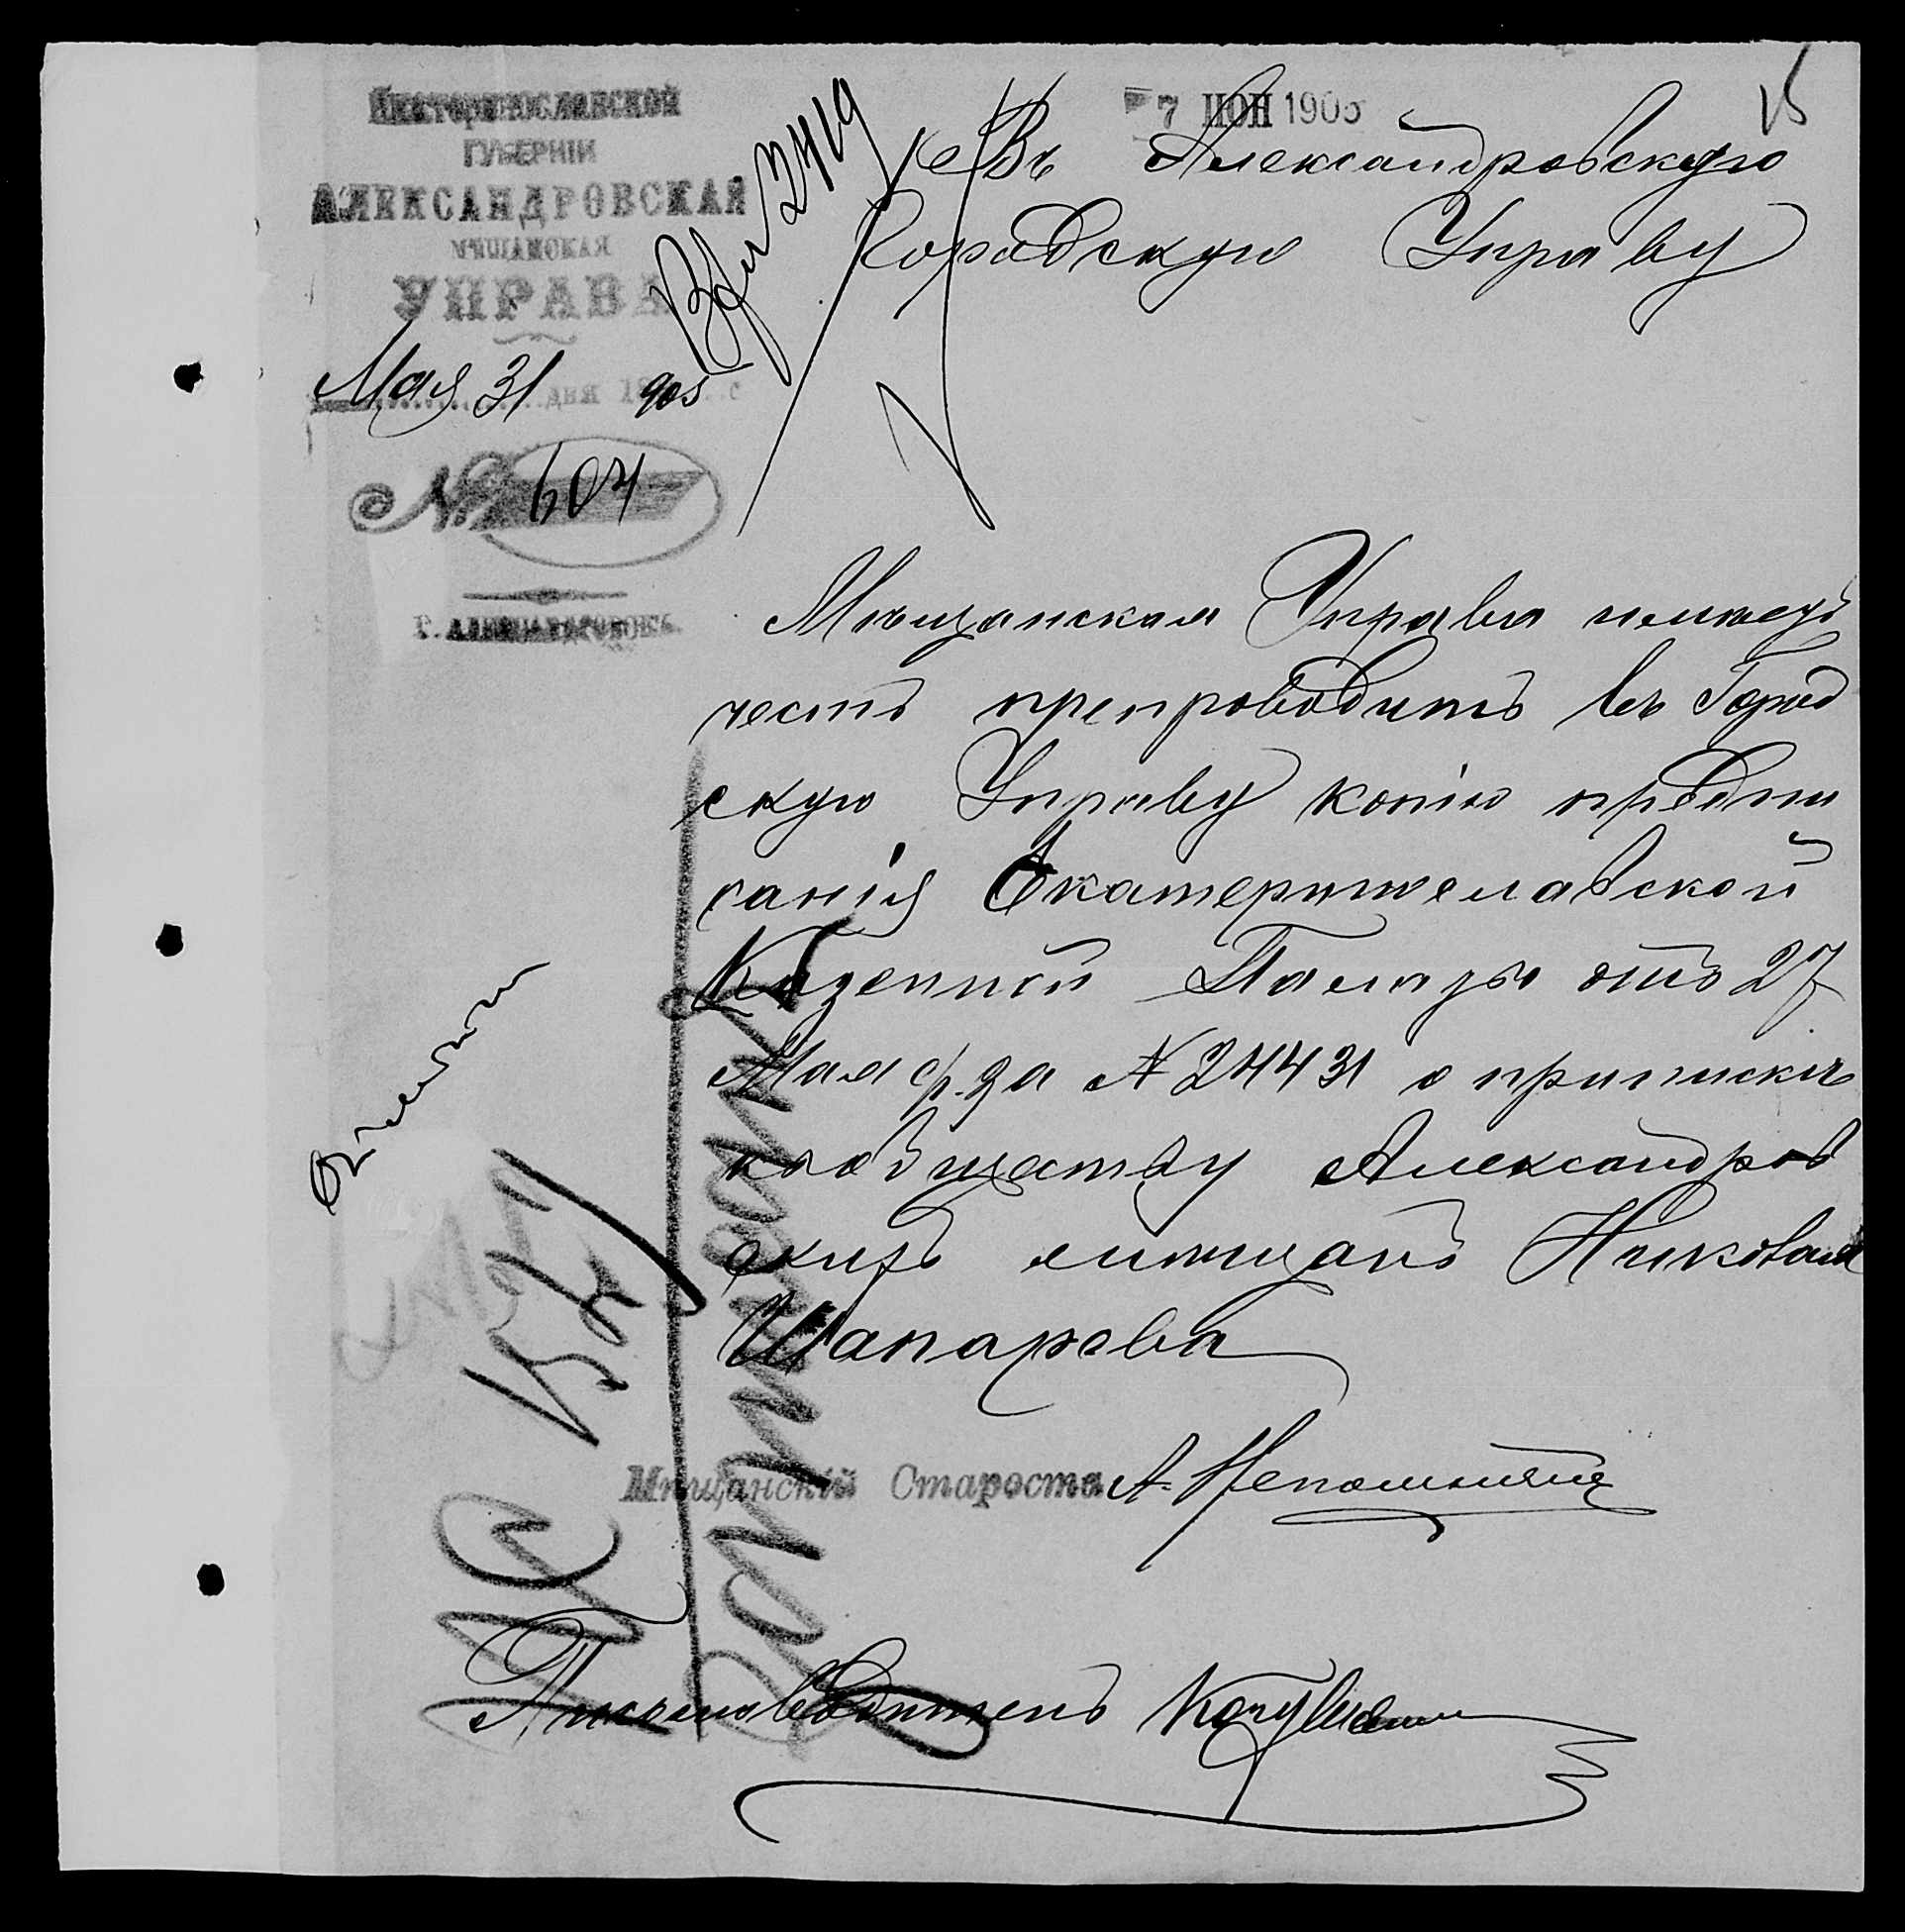 Екатеринославской
ГУБЕРНІИ
АЛЕКСАНДРОВСКАЯ
МѢЩАНСКАЯ
УПРАВА
Мая 31 дня 905
№ 604
Г. АЛЕКСАНДРОВСКЪ.
Вх 2419
7 ИЮН 1905
15
Въ Александровскую
Городскую Управу
Мѣщанская Управа имѣетъ
честь препроводить въ Город
скую Управу копію предпи
санія Екатеринославской
Казенной Палаты отъ 27
Мая с/г. за № 24431 о припискѣ
къ обществу Александров
скихъ мѣщанъ Николая
Шапарева
Мѣщанскій Староста А. Непомнящій
Письмоводитель